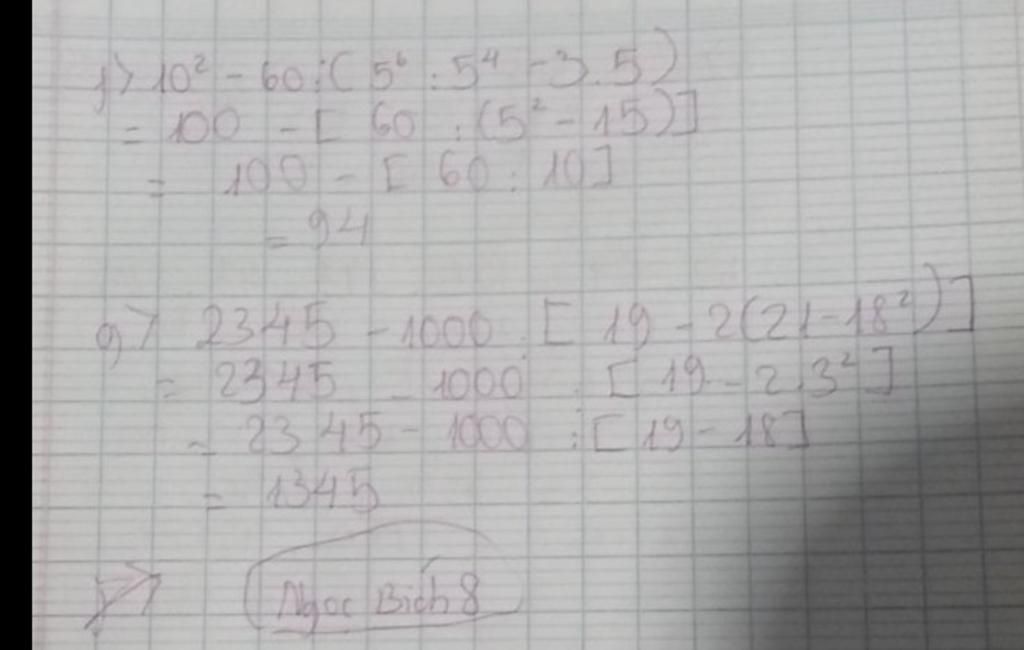 f) 10² - 60 : ( 5⁶ : 5⁴ - 3 . 5 )
= 100 - [ 60 : (5² - 15)]
= 100 - [ 60 : 10]
= 94
g) 2345 - 1000 : [ 19 - 2(21 - 18²)]
= 2345 - 1000 : [ 19 - 2.3²]
= 2345 - 1000 : [19 - 18]
= 1345
Ngọc Bích 8